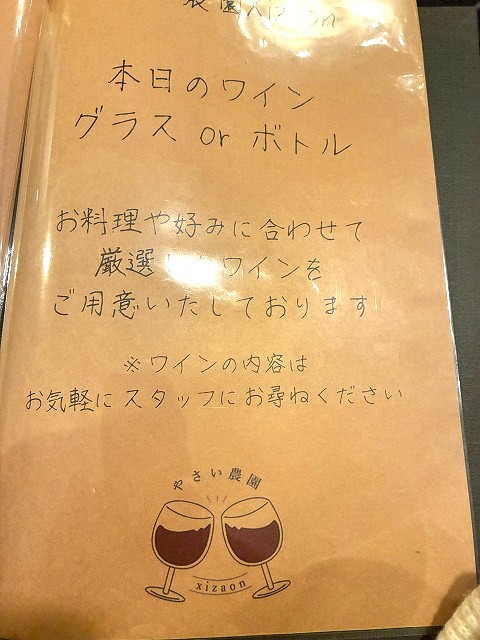 農園xizaon
本日のワイン
グラス or ボトル
お料理や好みに合わせて
厳選したワインを
ご用意いたしております
※ワインの内容は
お気軽にスタッフにお尋ねください
やさい農園
xizaon